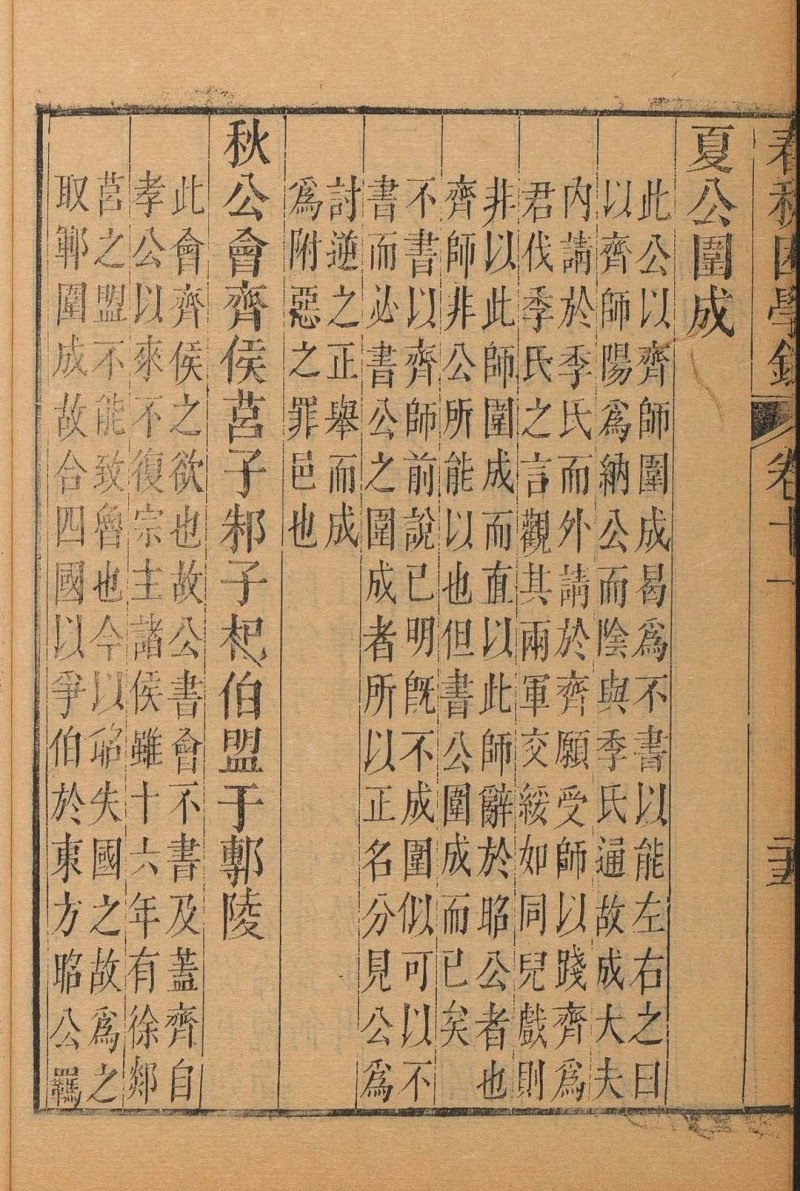 春秋困學錄
卷十一
二十五
夏公圍成
此公以齊師圍成曷爲不書以能左右之曰
以齊師陽爲納公而陰與季氏通故成大夫
内請於季氏而外請於齊願受師以踐齊爲
君伐季氏之言觀其兩軍交綏如同兒戲則
非以此師圍成而直以此師辭於昭公者也
齊師非公所能以也但書公圍成而已矣
不書以齊師前說已明旣不成圍似可以不
書而必書公之圍成者所以正名分見公爲
討逆之正舉而成
爲附惡之罪邑也
秋公會齊侯莒子邾子杞伯盟于鄟陵
此會齊侯之欲也故公書會不書及蓋齊自
孝公以來不復宗主諸侯雖十六年有徐郯
莒之盟不能致魯也今以昭失國之故爲之
取鄆圍成故合四國以爭伯於東方昭公羈